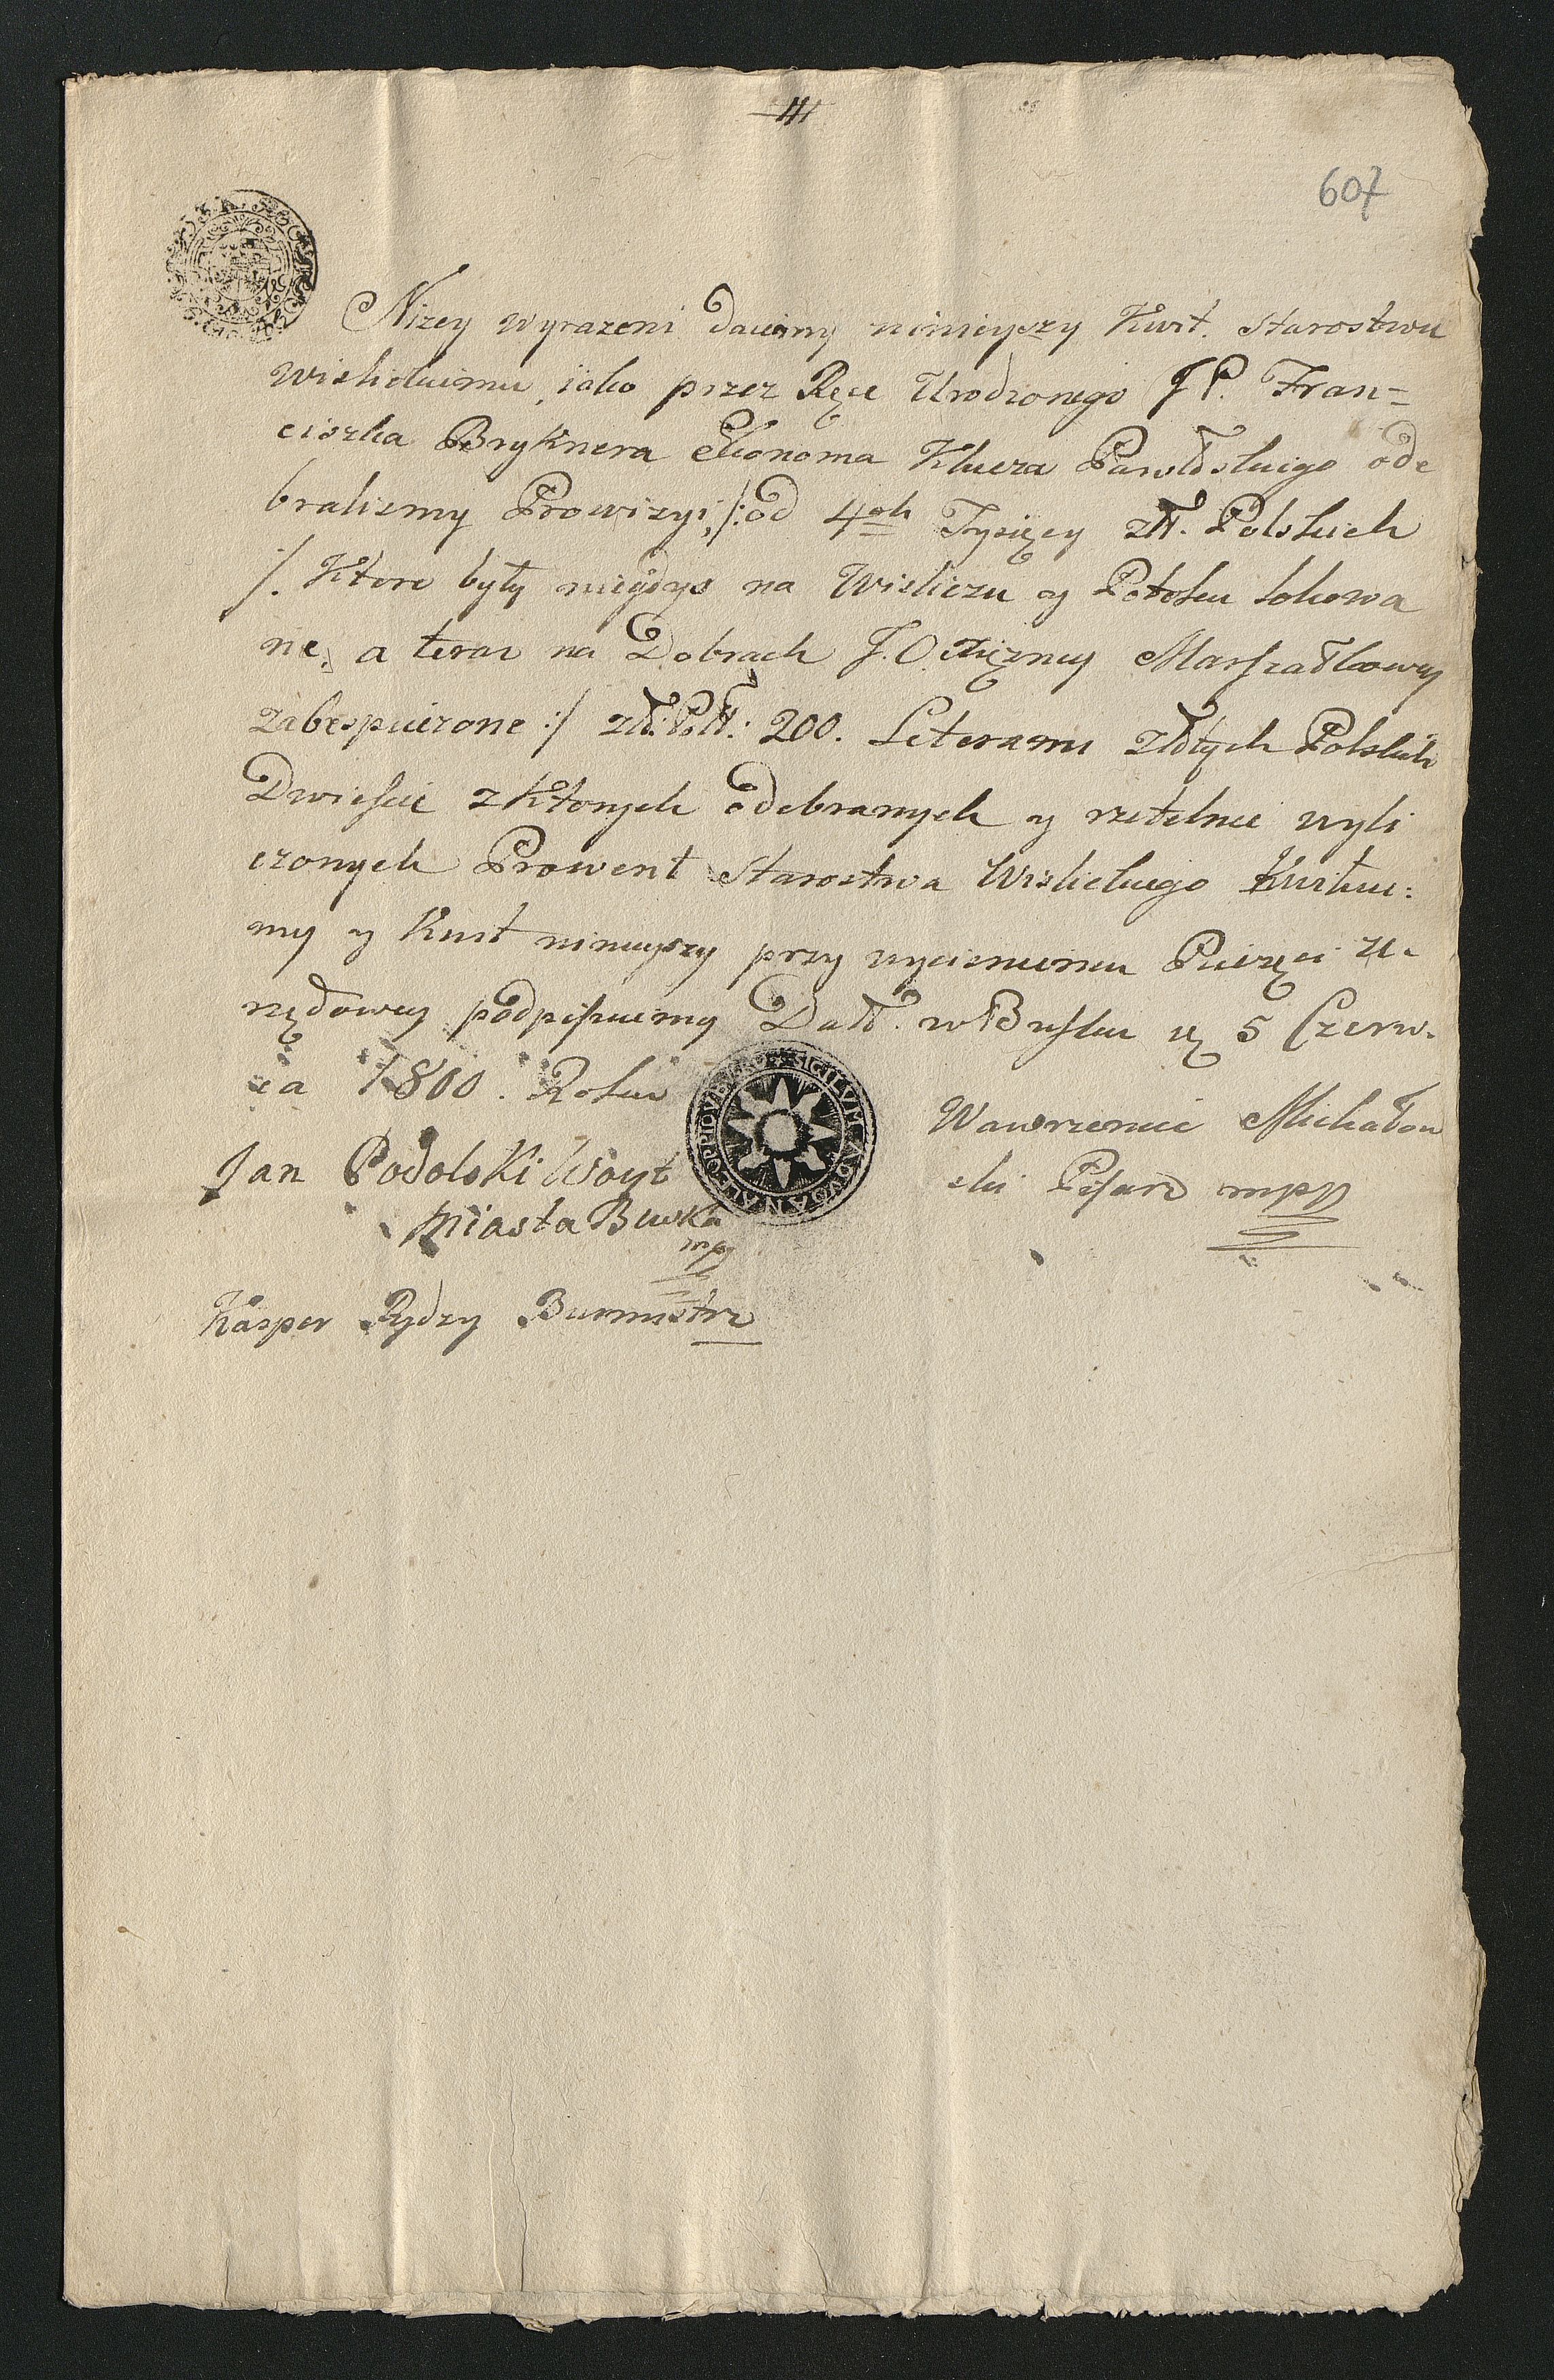 607
Nizey wyrazeni daiemy ninieyszy Kwit. Starostwu
Wislickiemu, iako przez Ręce Urodzonego JP. Fran=
ciszka Bryknera Ekonoma Klucza Pawłoskiego ode
bralismy Prowizyi /: od 4ech Tysięcy złł. Polskich
/. Ktore były niegdys na Wisliczu y Potoku lokowa
ne, a teraz na Dobrach J.O. Xiężney Marszałkowey
zabespieczone :/ złł: Poll: 200. Literami Złłotych Polskich
Dwieście z Ktorych odebranych y rzetelnie wyli
czonych Prowent Starostwa Wislickiego Kwituie:
my y Kwit ninieyszy przy wycisnieniu Pieczęci U-
rzędowey podpisuiemy Datt. w Busku d 5 Czerw.
ca 1800. Roku
SIGILVM ADVOCANALE OPPIDI
Wawrzeniec Michałow
ski Pisarz mpp
Jan Podolski Woyt
Miasta Buska
mpp
Kasper Rydzy Burmistrz